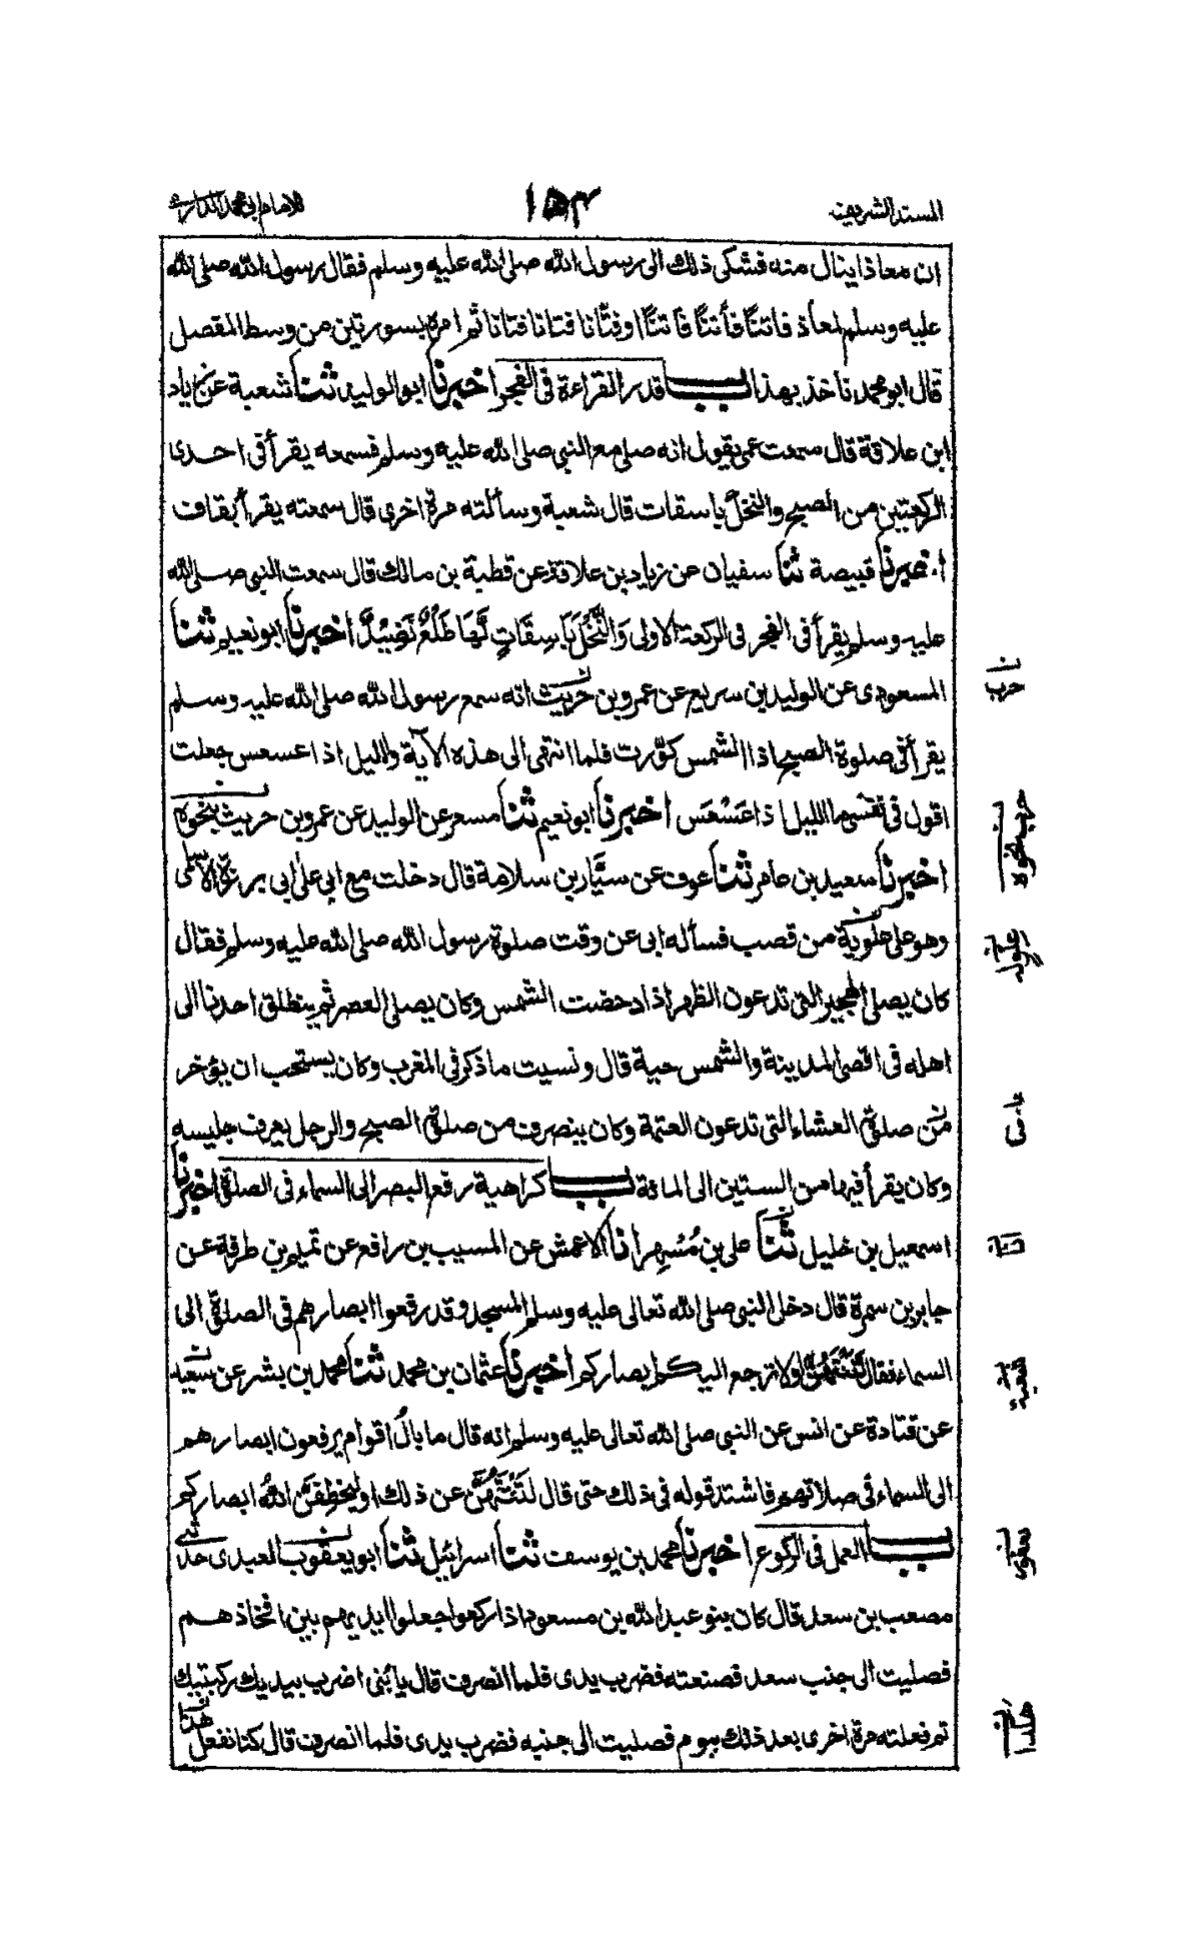 المسند الشريف
١٥٣
للامام ابى محمد الدارمى
ان معاذا ينال منه فشكى ذلك الى رسول الله صلى الله عليه وسلم فقال رسول الله صلى الله
عليه وسلم لمعاذ فاتنًا فأتنًا فاتنًا او فتّانا فتانا فتانا ثم امره بسورتين من وسط المفصل
قال ابو محمد نأخذ بهذا باب قدر القراءة فى الفجر اخبرنا ابو الوليد ثنا شعبة عن زياد
ابن علاقة قال سمعت عمى يقول انه صلى مع النبى صلى الله عليه وسلم فسمعه يقرأ فى احدى
الركعتين من الصبح والنخل باسقات قال شعبة وسألته مرة اخرى قال سمعته يقرأ بقاف
اخبرنا قبيصة ثنا سفيان عن زياد بن علاقة عن قطبة بن مالك قال سمعت النبى صلى الله
عليه وسلم يقرأ فى الفجر فى الركعة الاولى وَالنَّخْلَ بَاسِقَاتٍ لَّهَا طَلْعٌ نَضِيْدٌ اخبرنا ابو نعيم ثنا
المسعودى عن الوليد بن سريع عن عمرو بن حريث انه سمع رسول الله صلى الله عليه وسلم
يقرأ فى صلوة الصبح اذا الشمس كوّرت فلما انتهى الى هذه الآية والليل اذا عسعس جعلت
اقول فى نفسى ما الليل اذا عَسْعَس اخبرنا ابو نعيم ثنا مسعر عن الوليد عن عمرو بن حريث بنحوه
اخبرنا سعيد بن عامر ثنا عوف عن سيَّار بن سلامة قال دخلت مع ابى على ابى برزة الاسلمى
وهو على علوية من قصب فسأله ابى عن وقت صلوة رسول الله صلى الله عليه وسلم فقال
كان يصلى الهجير التى تدعون الظهر اذا دحضت الشمس وكان يصلى العصر ثم ينطلق احدنا الى
اهله فى اقصى المدينة والشمس حية قال ونسيت ما ذكر فى المغرب وكان يستحب ان يؤخر
من صلوة العشاء التى تدعون العتمة وكان ينصرف من صلوة الصبح والرجل يعرف جليسه
وكان يقرأ فيها من الستين الى المائة باب كراهية رفع البصر الى السماء فى الصلوة اخبرنا
اسمعيل بن خليل ثنا على بن مُسْهِر انا الاعمش عن المسيب بن رافع عن تميم بن طرفة عن
جابر بن سمرة قال دخل النبى صلى الله تعالى عليه وسلم المسجد وقد رفعوا ابصارهم فى الصلوة الى
السماء فقال لَتَنْتَهُنَّ اولا ترجع اليكم ابصاركم اخبرنا عثمان بن محمد ثنا محمد بن بشر عن سعيد
عن قتادة عن انس عن النبى صلى الله تعالى عليه وسلم انه قال ما بالُ اقوام يرفعون ابصارهم
الى السماء فى صلاتهم فاشتد قوله فى ذلك حتى قال لَتَنْتَهُنَّ عن ذلك او ليخطِفَنَّ اللهُ ابصاركم
باب العمل فى الركوع اخبرنا محمد بن يوسف ثنا اسرائيل ثنا ابو يعقوب العبدى حدثنى
مصعب بن سعد قال كان بنو عبد الله بن مسعود اذا ركعوا جعلوا ايديهم بين افخاذهم
فصليت الى جنب سعد فصنعته فضرب يدى فلما انصرف قال يا بُنى اضرب بيديك ركبتيك
ثم فعلته مرة اخرى بعد ذلك بيوم فصليت الى جنبه فضرب يدى فلما انصرف قال كنا نفعل هذا
حرب
شعبة